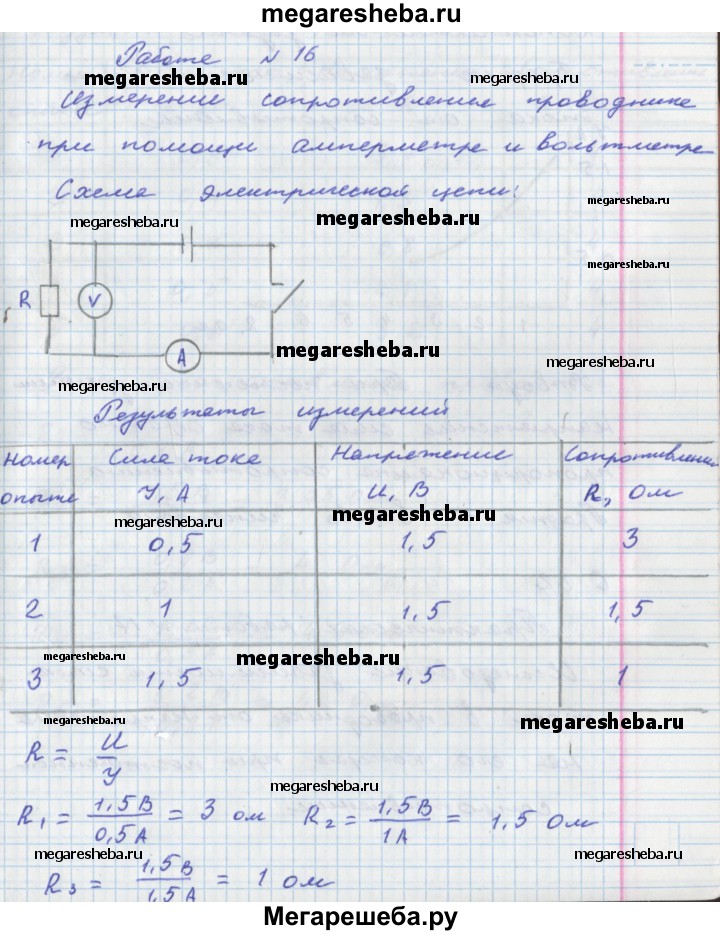 megaresheba.ru
Работа № 16
megaresheba.ru megaresheba.ru
Измерение сопротивления проводника
при помощи амперметра и вольтметра
Схема электрической цепи:
megaresheba.ru megaresheba.ru megaresheba.ru
megaresheba.ru
R V
A megaresheba.ru
megaresheba.ru megaresheba.ru
Результаты измерений
Номер опыта Сила тока I, А Напряжение U, В Сопротивление R, Ом
megaresheba.ru megaresheba.ru
1 0,5 1,5 3
2 1 1,5 1,5
megaresheba.ru megaresheba.ru
3 1,5 1,5 1
megaresheba.ru megaresheba.ru
R = U/I
megaresheba.ru
R1 = 1,5В/0,5А = 3 ом R2 = 1,5В/1А = 1,5 Ом
megaresheba.ru megaresheba.ru megaresheba.ru
R3 = 1,5В/1,5А = 1 ом
Мегарешеба.ру